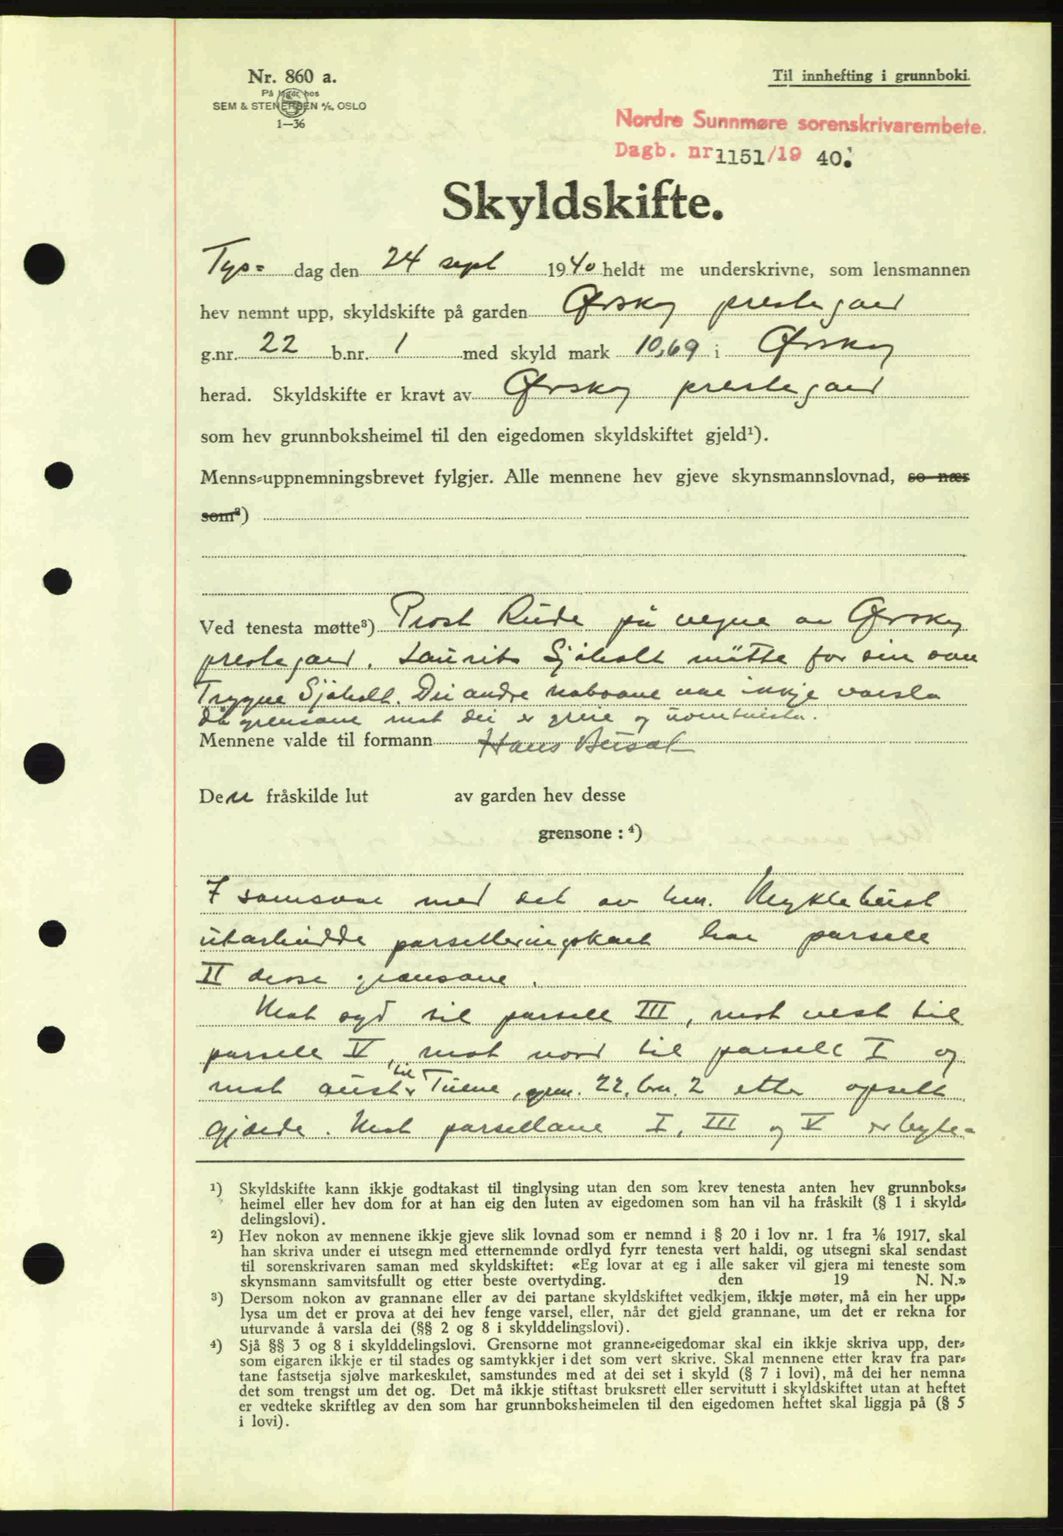 Nr. 860 a.
Til innhefting i grunnboki.
På lager hos
SEM & STENERSEN A/S, OSLO
1—36
Nordre Sunnmøre sorenskrivarembete.
Dagb. nr 1151/19 40.
Skyldskifte.
Tys= dag den 24 sept 1940 heldt me underskrivne, som lensmannen
hev nemnt upp, skyldskifte på garden Ørskog prestegard
g.nr. 22 b.nr. 1 med skyld mark 10,69 i Ørskog
herad. Skyldskifte er kravt av Ørskog prestegard
som hev grunnboksheimel til den eigedomen skyldskiftet gjeld¹).
Menns=uppnemningsbrevet fylgjer. Alle mennene hev gjeve skynsmannslovnad, so nær
som²)
Ved tenesta møtte³) Prost Riide på vegne av Ørskog
prestegard. Laurits Sjøholt møtte for sin son
Trygve Sjøholt. Dei andre naboane var ikkje varsla
då grensane mot dei er greie og uomtvista.
Mennene valde til formann Hans
Den fråskilde lut av garden hev desse
grensone : ⁴)
I samsvar med det av hr. Myklebust
utarbeidde parselleringskart har parsell
II desse grensane.
Mot syd til parsell III, mot vest til
parsell V, mot nord til parsell I og
mot aust til Tuene, gnr. 22, bnr. 2 etter opsett
gjærde. Mot parsellane I, III og V er byte=
¹) Skyldskifte kann ikkje godtakast til tinglysing utan den som krev tenesta anten hev grunnboks=
heimel eller hev dom for at han eig den luten av eigedomen som han vil ha fråskilt (§ 1 i skyld=
delingslovi).
²) Hev nokon av mennene ikkje gjeve slik lovnad som er nemnd i § 20 i lov nr. 1 fra 1/6 1917, skal
han skriva under ei utsegn med etternemnde ordlyd fyrr tenesta vert haldi, og utsegni skal sendast
til sorenskrivaren saman med skyldskiftet: «Eg lovar at eg i alle saker vil gjera mi teneste som
skynsmann samvitsfullt og etter beste overtyding. den 19 N. N.»
³) Dersom nokon av grannane eller av dei partane skyldskiftet vedkjem, ikkje møter, må ein her upp=
lysa um det er prova at dei hev fenge varsel, eller, når det gjeld grannane, um det er rekna for
uturvande å varsla dei (§§ 2 og 8 i skylddelingslovi).
⁴) Sjå §§ 3 og 8 i skylddelingslovi. Grensorne mot granne=eigedomar skal ein ikkje skriva upp, der=
som eigaren ikkje er til stades og samtykkjer i det som vert skrive. Skal mennene etter krav fra par=
tane fastsetja sjølve markeskilet, samstundes med at dei set i skyld (§ 7 i lovi), må dei her nemna
det som trengst um det og. Det må ikkje stiftast bruksrett eller servitutt i skyldskiftet utan at heftet
er vedteke skriftleg av den som har grunnboksheimelen til den eigedomen heftet skal liggja på (§ 5
i lovi).